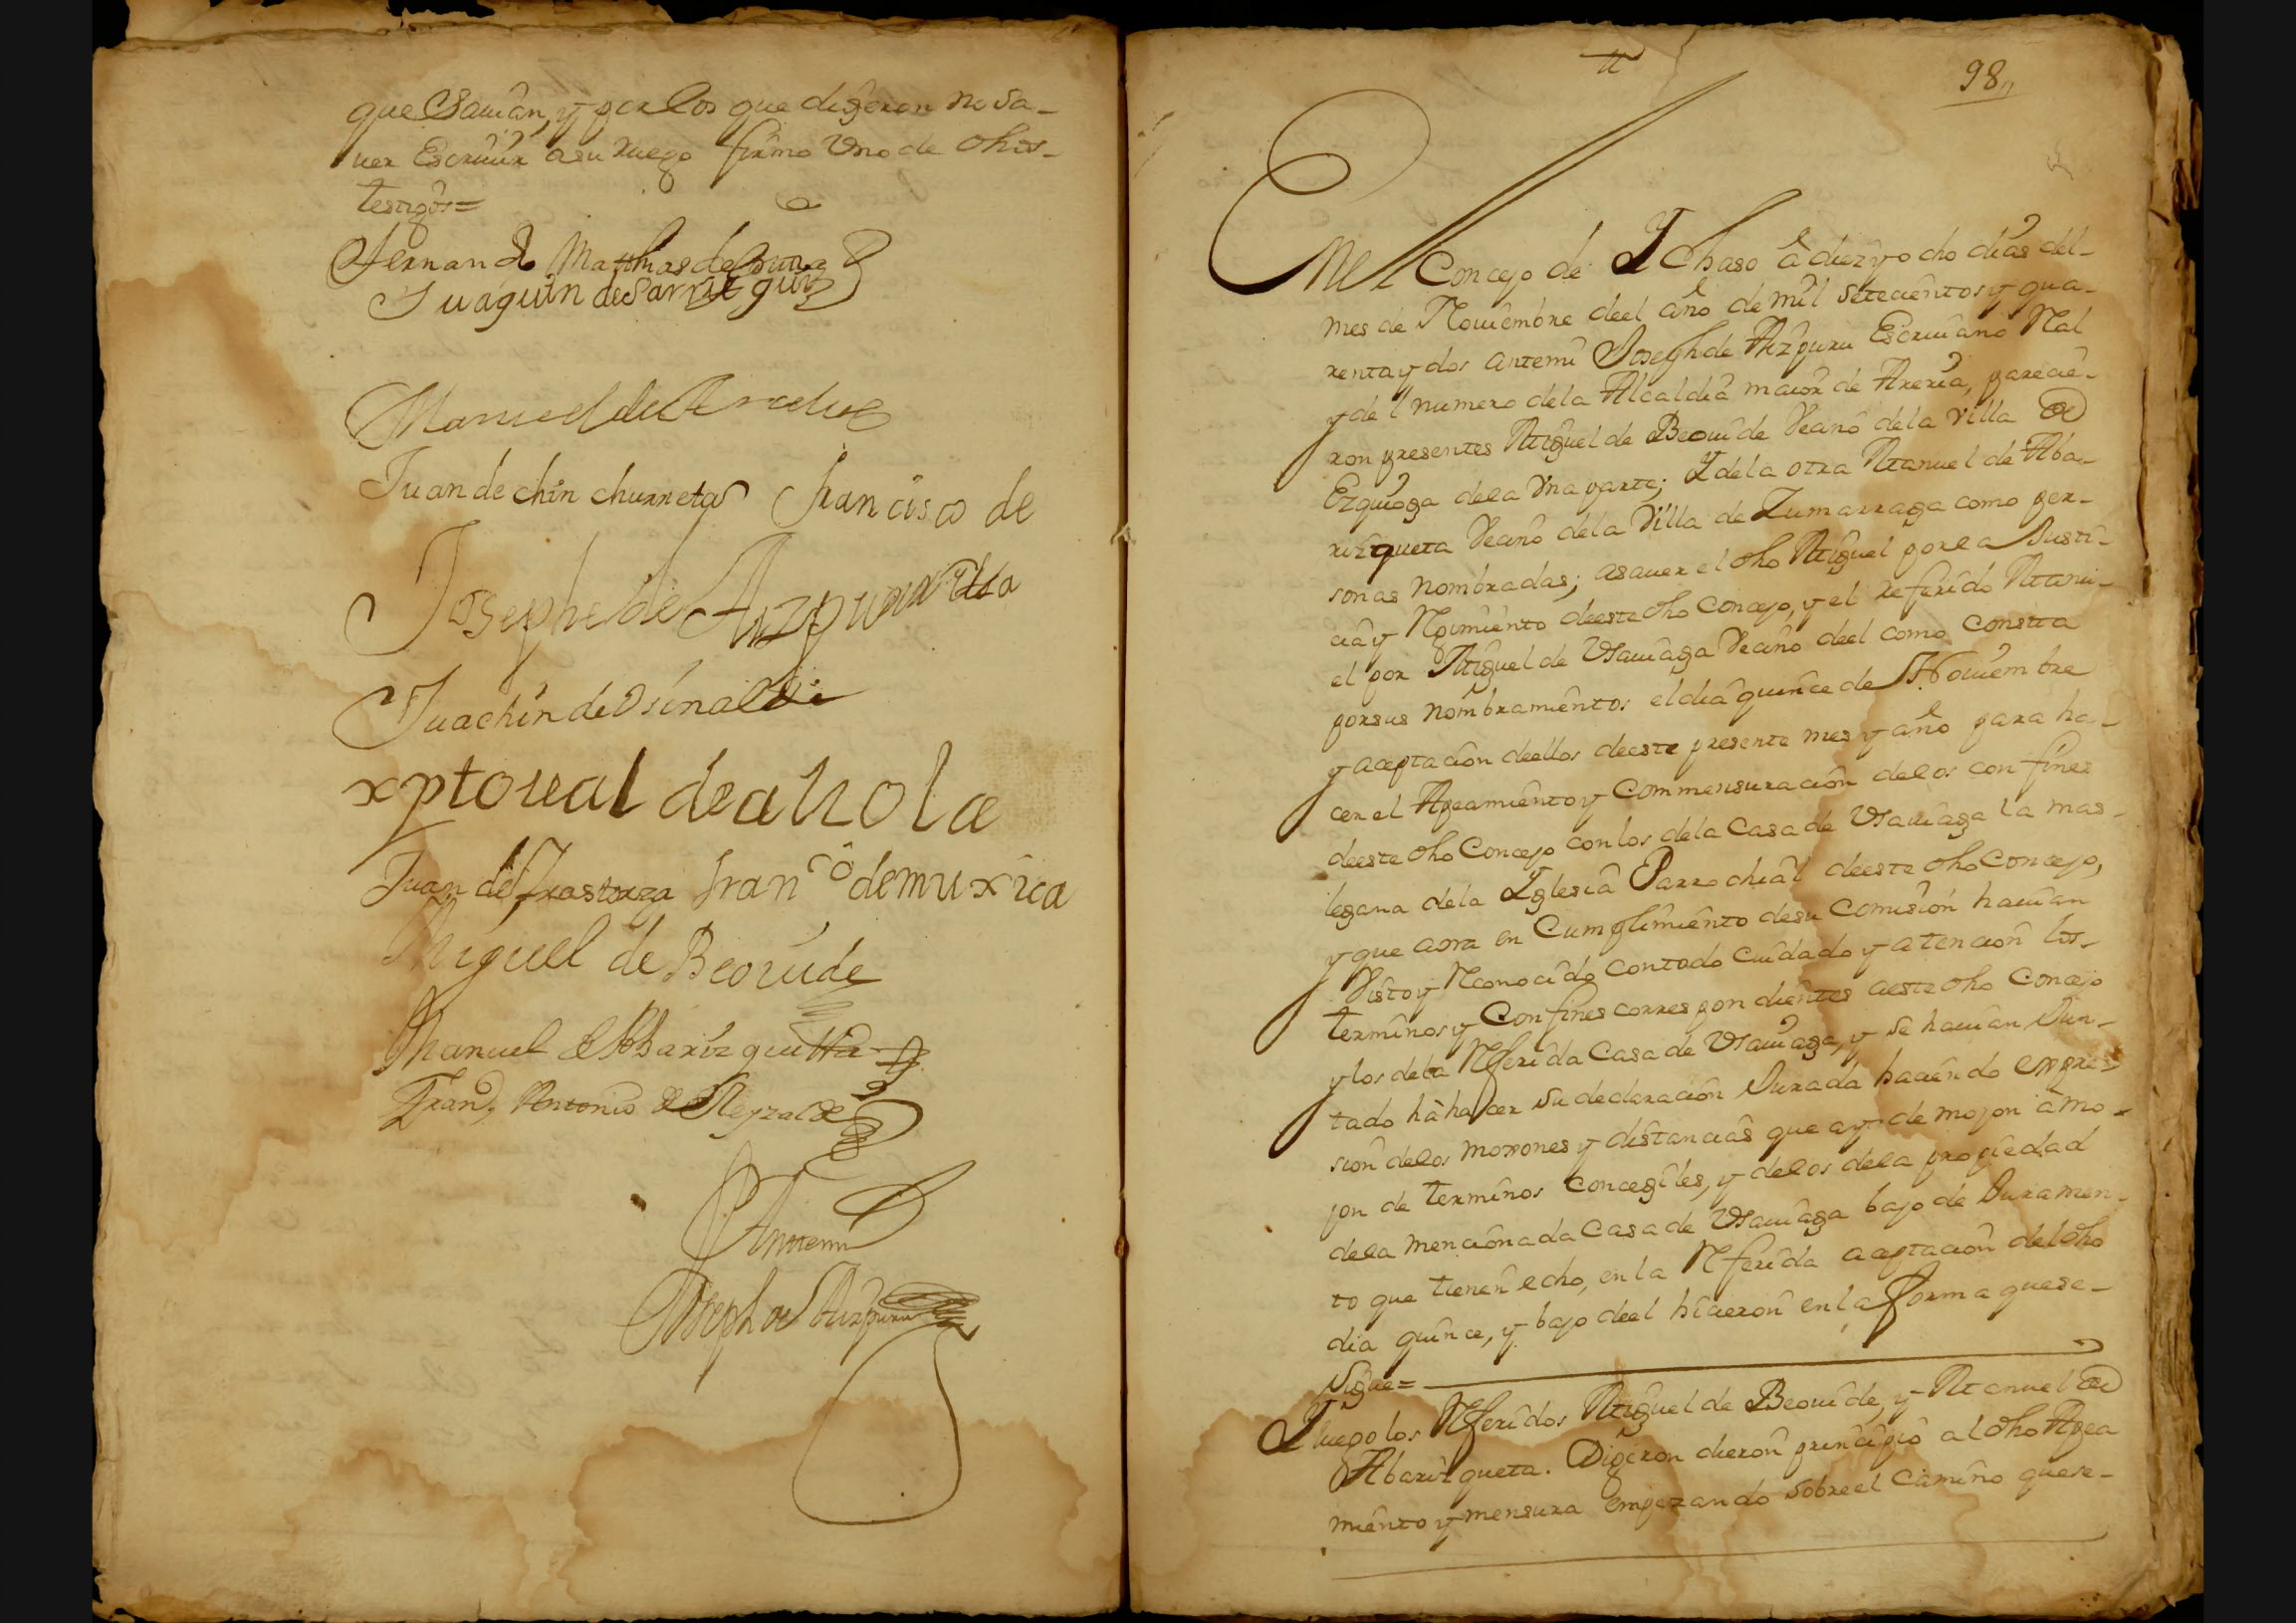 que Sauian, y por los que digeron no sa-
uer Escriuir a su ruego firmo Vno de dhos-
testigos=
Fernando Matthias de
Juaquin de Sarriegui
Manuel de
Juan de chin churreta Francisco de
Josephe de Aizpuru
Juachin de Vsinalde
xptoual de aRola
Juan de Irastorza Franco de muxica
Miguel de Beouide
Manuel de Abarizquetta
Fran Antonio de Reyzalde
Antemi
Joseph de Aizpuru
98
En el Concejo de YChaso â diez y ocho dias del-
mes de Nouiembre deel año de mil setecientos y qua-
renta y dos antemi Joseph de Aizpuru Escriuano Ral
y del numero dela Alcaldia maior de Areria, parecie-
ron presentes Miguel de Beouide Vecino dela Villa de
Ezquioga dela Vna parte; Y dela otra Manuel de Aba-
rizqueta Vecino dela Villa de Zumarraga como per-
sonas nombradas; asauer el dho Miguel por la Justi-
cia y Rgimiento deeste dho Concejo, y el referido Manu-
el por Miguel de Vsauiaga Vecino deel como consta
por sus nombramientos el dia quince de Nouiembre
y aceptacion deellos deeste presente mes y año para ha-
cer el Apeamiento y Commensuracion delos confines
deeste dho Concejo con los dela Casa de Vsauiaga la mas-
legana dela Yglesia Parrochial deeste dho Concejo,
y que aora en Cumplimiento desu Comision hauian
Visto y Rconocido con todo Cuidado y atencion los-
terminos y Confines correspondientes aeste dho Concejo
y los dela Rferida Casa de Vsauiaga, y se hauian Jun-
tado hà hacer su declaracion Jurada haciendo expre-
sion delos moxones y distancias que ay de mojon à mo-
jon de terminos Concegiles, y delos dela propiedad
dela mencionada Casa de Vsauiaga bajo de Juramen-
to que tienen echo, en la Rferida aceptacion del dho
dia quince, y bajo deel hicieron en la forma quese-
sigue=
Y luego los Rferidos Miguel de Beouide, y Manuel de
Abarizqueta. Digeron dieron principio al dho Apea
miento y mensura empezando sobre el Camino quese-